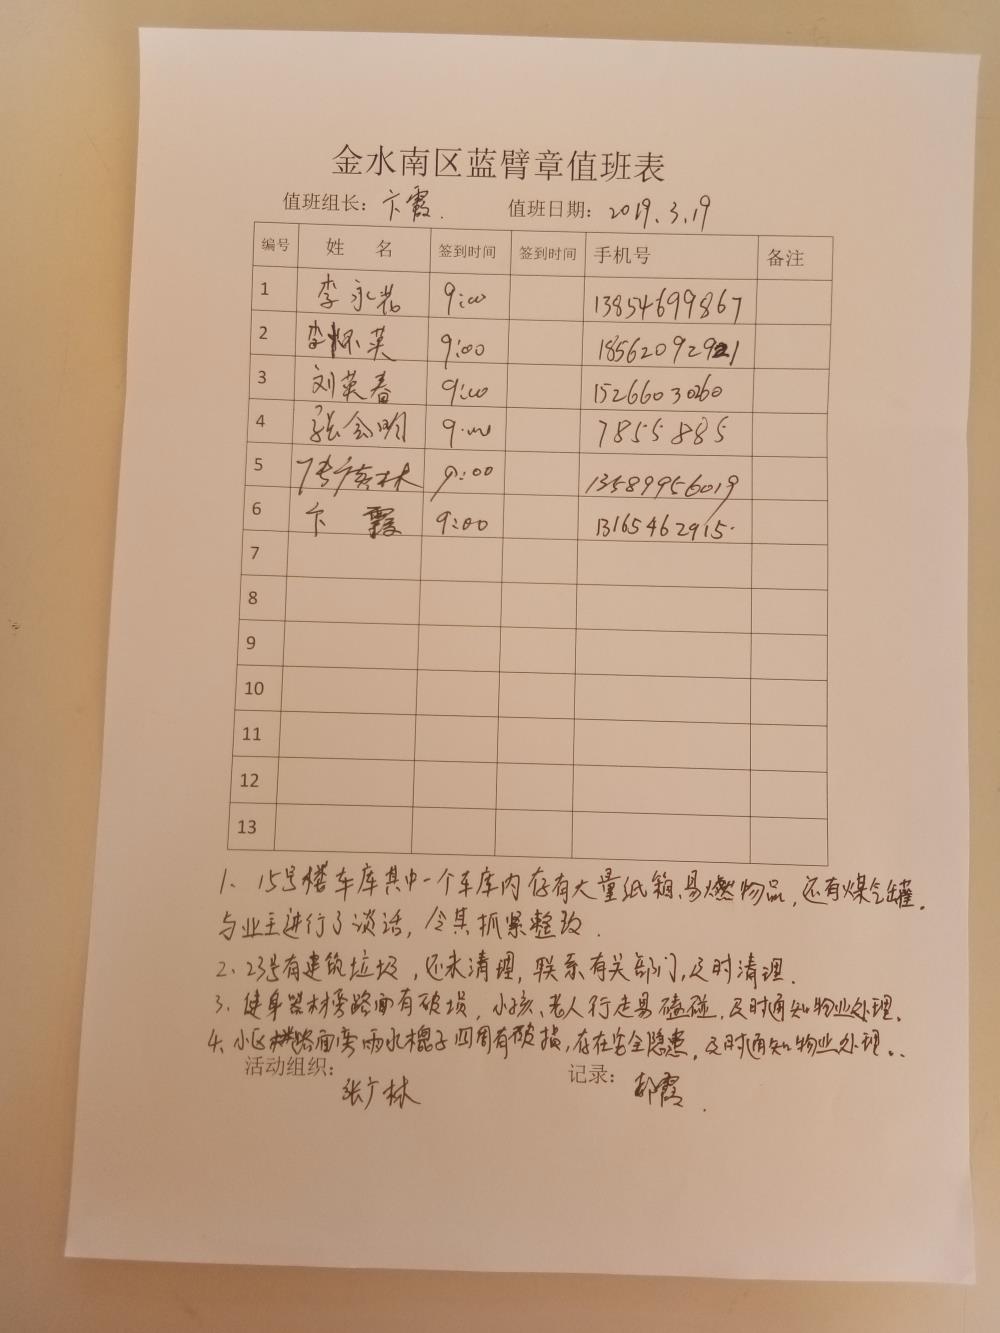 金水南区蓝臂章值班表
值班组长： 卞霞. 值班日期： 2019.3.19
编号 姓 名 签到时间 签到时间 手机号 备注
1 李永岩 9:00 13854699867
2 李怀英 9:00 18562092921
3 刘英春 9:00 15266030260
4 张会明 9:00 7855885
5 林 9:00 13589956019
6 卞 霞 9:00 13165462915
7
8
9
10
11
12
13
1、15号楼车库其中一个车库内存有大量纸箱、易燃物品，还有煤气罐。
与业主进行了谈话，令其抓紧整改.
2、23号有建筑垃圾，还未清理，联系有关部门，及时清理.
3、健身器材旁路面有破损，小孩、老人行走易磕碰，及时通知物业处理。
4、小区路面旁雨水棍子四周有破损，存在安全隐患，及时通知物业处理。
活动组织： 记录：
张广林 霞.